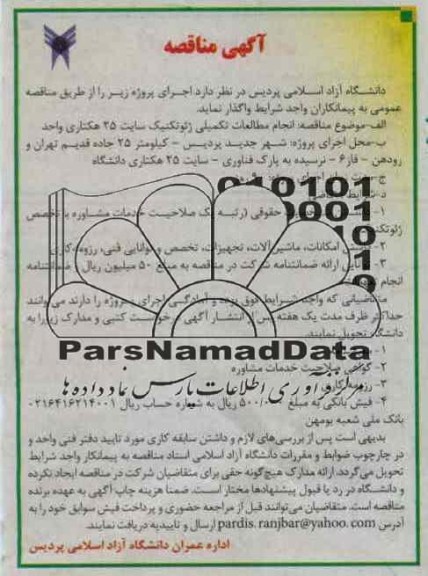 آگهی مناقصه
دانشگاه آزاد اسلامی پردیس در نظر دارد اجرای پروژه زیر را از طریق مناقصه
عمومی به پیمانکاران واجد شرایط واگذار نماید.
الف-موضوع مناقصه: انجام مطالعات تکمیلی ژئوتکنیک سایت ۲۵ هکتاری واحد
ب-محل اجرای پروژه: شهر جدید پردیس - کیلومتر ۲۵ جاده قدیم تهران و
رودهن - فاز۶ - نرسیده به پارک فناوری - سایت ۲۵ هکتاری دانشگاه
010101
0001
حقوقی (رتبه یک صلاحیت خدمات مشاوره با تخصص
ژئوتکنیک
۲- امکانات، ماشین‌آلات، تجهیزات، تخصص و توانایی فنی، رزومه کاری
۳- ارائه ضمانتنامه شرکت در مناقصه به مبلغ ۵۰ میلیون ریال ضمانتنامه
انجام
متقاضیانی که واجد شرایط فوق بوده و آمادگی اجرای پروژه را دارند می توانند
حداکثر ظرف مدت یک هفته پس از انتشار آگهی درخواست کتبی و مدارک زیر را به
دانشگاه تحویل نمایند.
ParsNamadData
۲- گواهی صلاحیت خدمات مشاوره
فرآوری اطلاعات پارس نماد داده ها
۳- رزومه کاری
۴- فیش بانکی به مبلغ ۵۰۰/۰۰۰ ریال به شماره حساب ریال ۰۲۱۶۴۱۶۲۱۴۰۰۱
بانک ملی شعبه بومهن
بدیهی است پس از بررسی‌های لازم و داشتن سابقه کاری مورد تایید دفتر فنی واحد و
در چارچوب ضوابط و مقررات دانشگاه آزاد اسلامی اسناد مناقصه به پیمانکار واجد شرایط
تحویل می‌گردد. ارائه مدارک هیچ‌گونه حقی برای متقاضیان شرکت در مناقصه ایجاد نکرده
و دانشگاه در رد یا قبول پیشنهادها مختار است. ضمنا هزینه چاپ آگهی به عهده برنده
مناقصه است. متقاضیان می‌توانند قبل از مراجعه حضوری و پرداخت فیش سوابق خود را به
آدرس pardis.ranjbar@yahoo.com ارسال و تاییدیه دریافت نمایند.
اداره عمران دانشگاه آزاد اسلامی پردیس